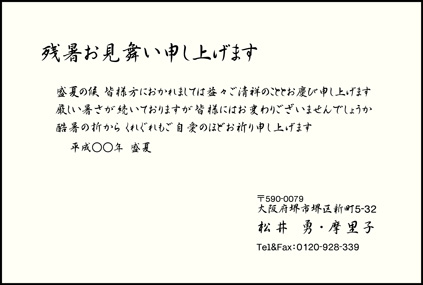 残暑お見舞い申し上げます
盛夏の候 皆様方におかれましては益々ご清祥のこととお慶び申し上げます
厳しい暑さが続いておりますが皆様にはお変わりございませんでしょうか
酷暑の折から くれぐれもご自愛のほどお祈り申し上げます
平成〇〇年 盛夏
〒590-0079
大阪府堺市堺区新町5-32
松井 勇・摩里子
Tel&Fax:0120-928-339